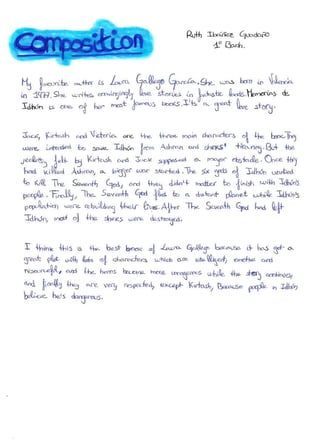 Ruth Ibáñez Guadaño
Composition
1º Bach.
My favourite author is Laura Gallego García. She was born in Valencia
in 1977. She writes amazingly love stories in fantastic lands. Memorias de
Idhún is one of her most famous books. It's a great love story.
Jack, Kirtash and Victoria are the three main characters of the book. They
were intended to save Idhún from Ashran and sheks' tiranny. But the
jealousy felt by Kirtash and Jack supposed a mayor obstacle. Once they
had killed Ashran, a bigger war started. The six gods of Idhún wanted
to kill The Seventh God, and they didn't matter to finish with Idhún's
people. Finally, The Seventh God flies to a distant planet while Idhún's
population were rebuilding their lives. After The Seventh God had left
Idhún, most of the sheks were destroyed.
I think this is the best book of Laura Gallego because it has got a
great plot with lots of characters which are intelligent, emotive and
resourceful, and the heros become more courageous while the story continues
and finally they are very respected, except Kirtash, Because people in Idhún
believe he's dangerous.